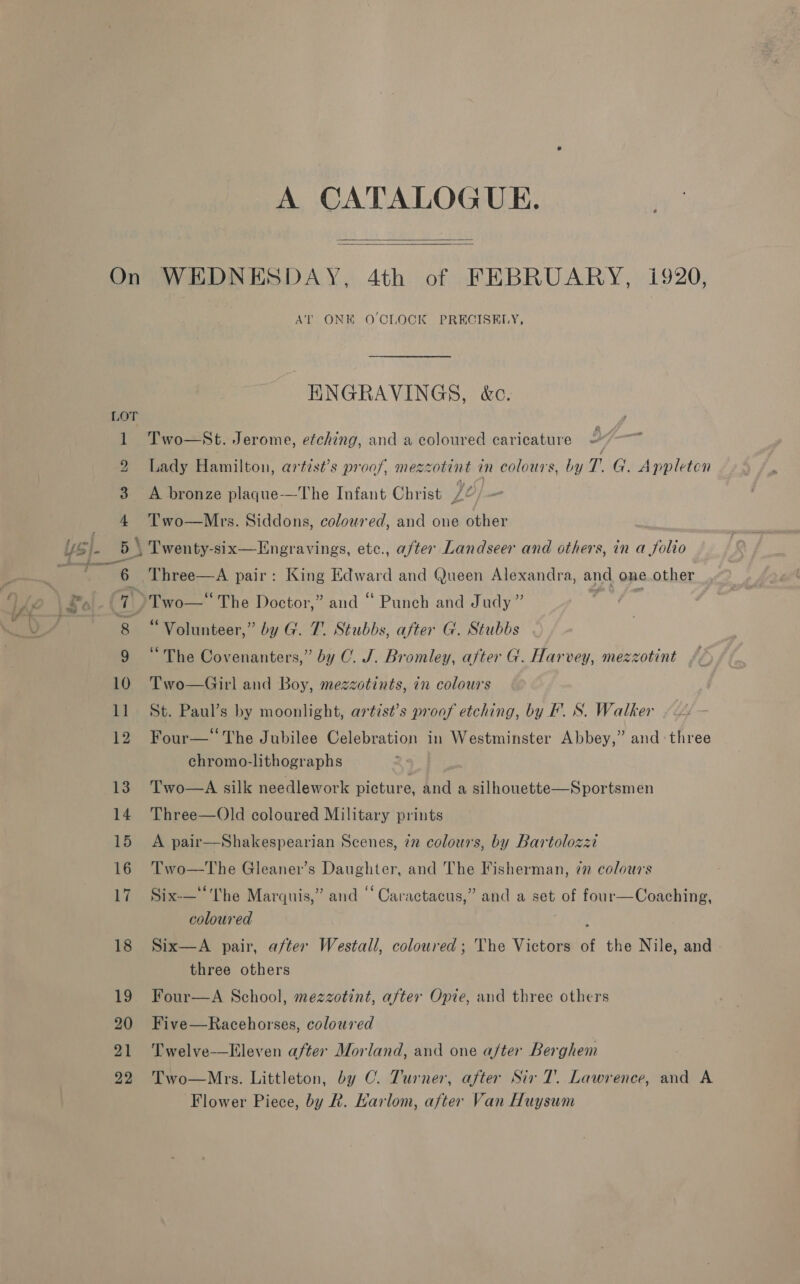 A CATALOGUE.
On WEDNESDAY, 4th of FEBRUARY, 1920,
AT ONE O'CLOCK PRECISELY,
ENGRAVINGS, &c.
LOT
1 Two—St. Jerome, etching, and a coloured caricature
2 Lady Hamilton, artist's proof, mezzotint in colours, by T. G. Appleton
3 A bronze plaque—The Infant Christ
4 Two—Mrs. Siddons, coloured, and one other
5 Twenty-six—Engravings, etc., after Landseer and others, in a folio
6 Three—A pair: King Edward and Queen Alexandra, and one other
7 Two—“The Doctor,” and “Punch and Judy”
8 “Volunteer,” by G. T. Stubbs, after G. Stubbs
9 “The Covenanters,” by C. J. Bromley, after G. Harvey, mezzotint
10 Two—Girl and Boy, mezzotints, in colours
11 St. Paul's by moonlight, artist's proof etching, by F. S. Walker
12 Four—“The Jubilee Celebration in Westminster Abbey,” and three
chromo-lithographs
13 Two—A silk needlework picture, and a silhouette—Sportsmen
14 Three—Old coloured Military prints
15 A pair—Shakespearian Scenes, in colours, by Bartolozzi
16 Two—The Gleaner's Daughter, and The Fisherman, in colours
17 Six—“The Marquis,” and “Caractacus,” and a set of four—Coaching,
coloured
18 Six—A pair, after Westall, coloured; The Victors of the Nile, and
three others
19 Four—A School, mezzotint, after Opie, and three others
20 Five—Racehorses, coloured
21 Twelve—Eleven after Morland, and one after Berghem
22 Two—Mrs. Littleton, by C. Turner, after Sir T. Lawrence, and A
Flower Piece, by R. Earlom, after Van Huysum